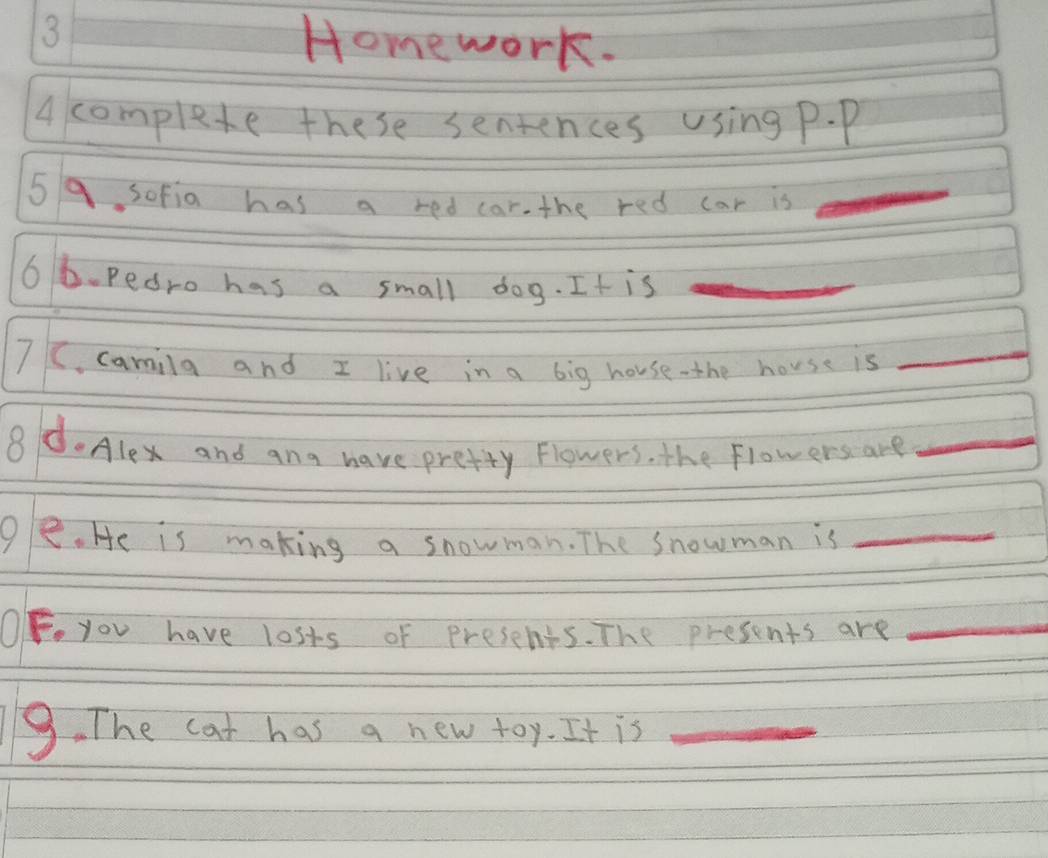 3
Homework.
4 complete these sentences using P.P
5 a. sofia has a red car. the red car is
6 b. Pedro has a small dog. It is
7 C. camila and I live in a big house. the house is
8 d. Alex and ana have pretty Flowers. the Flowers are
9 e. He is making a snowman. The snowman is
0 F. you have losts of Presents. The presents are
g. The cat has a new toy. It is